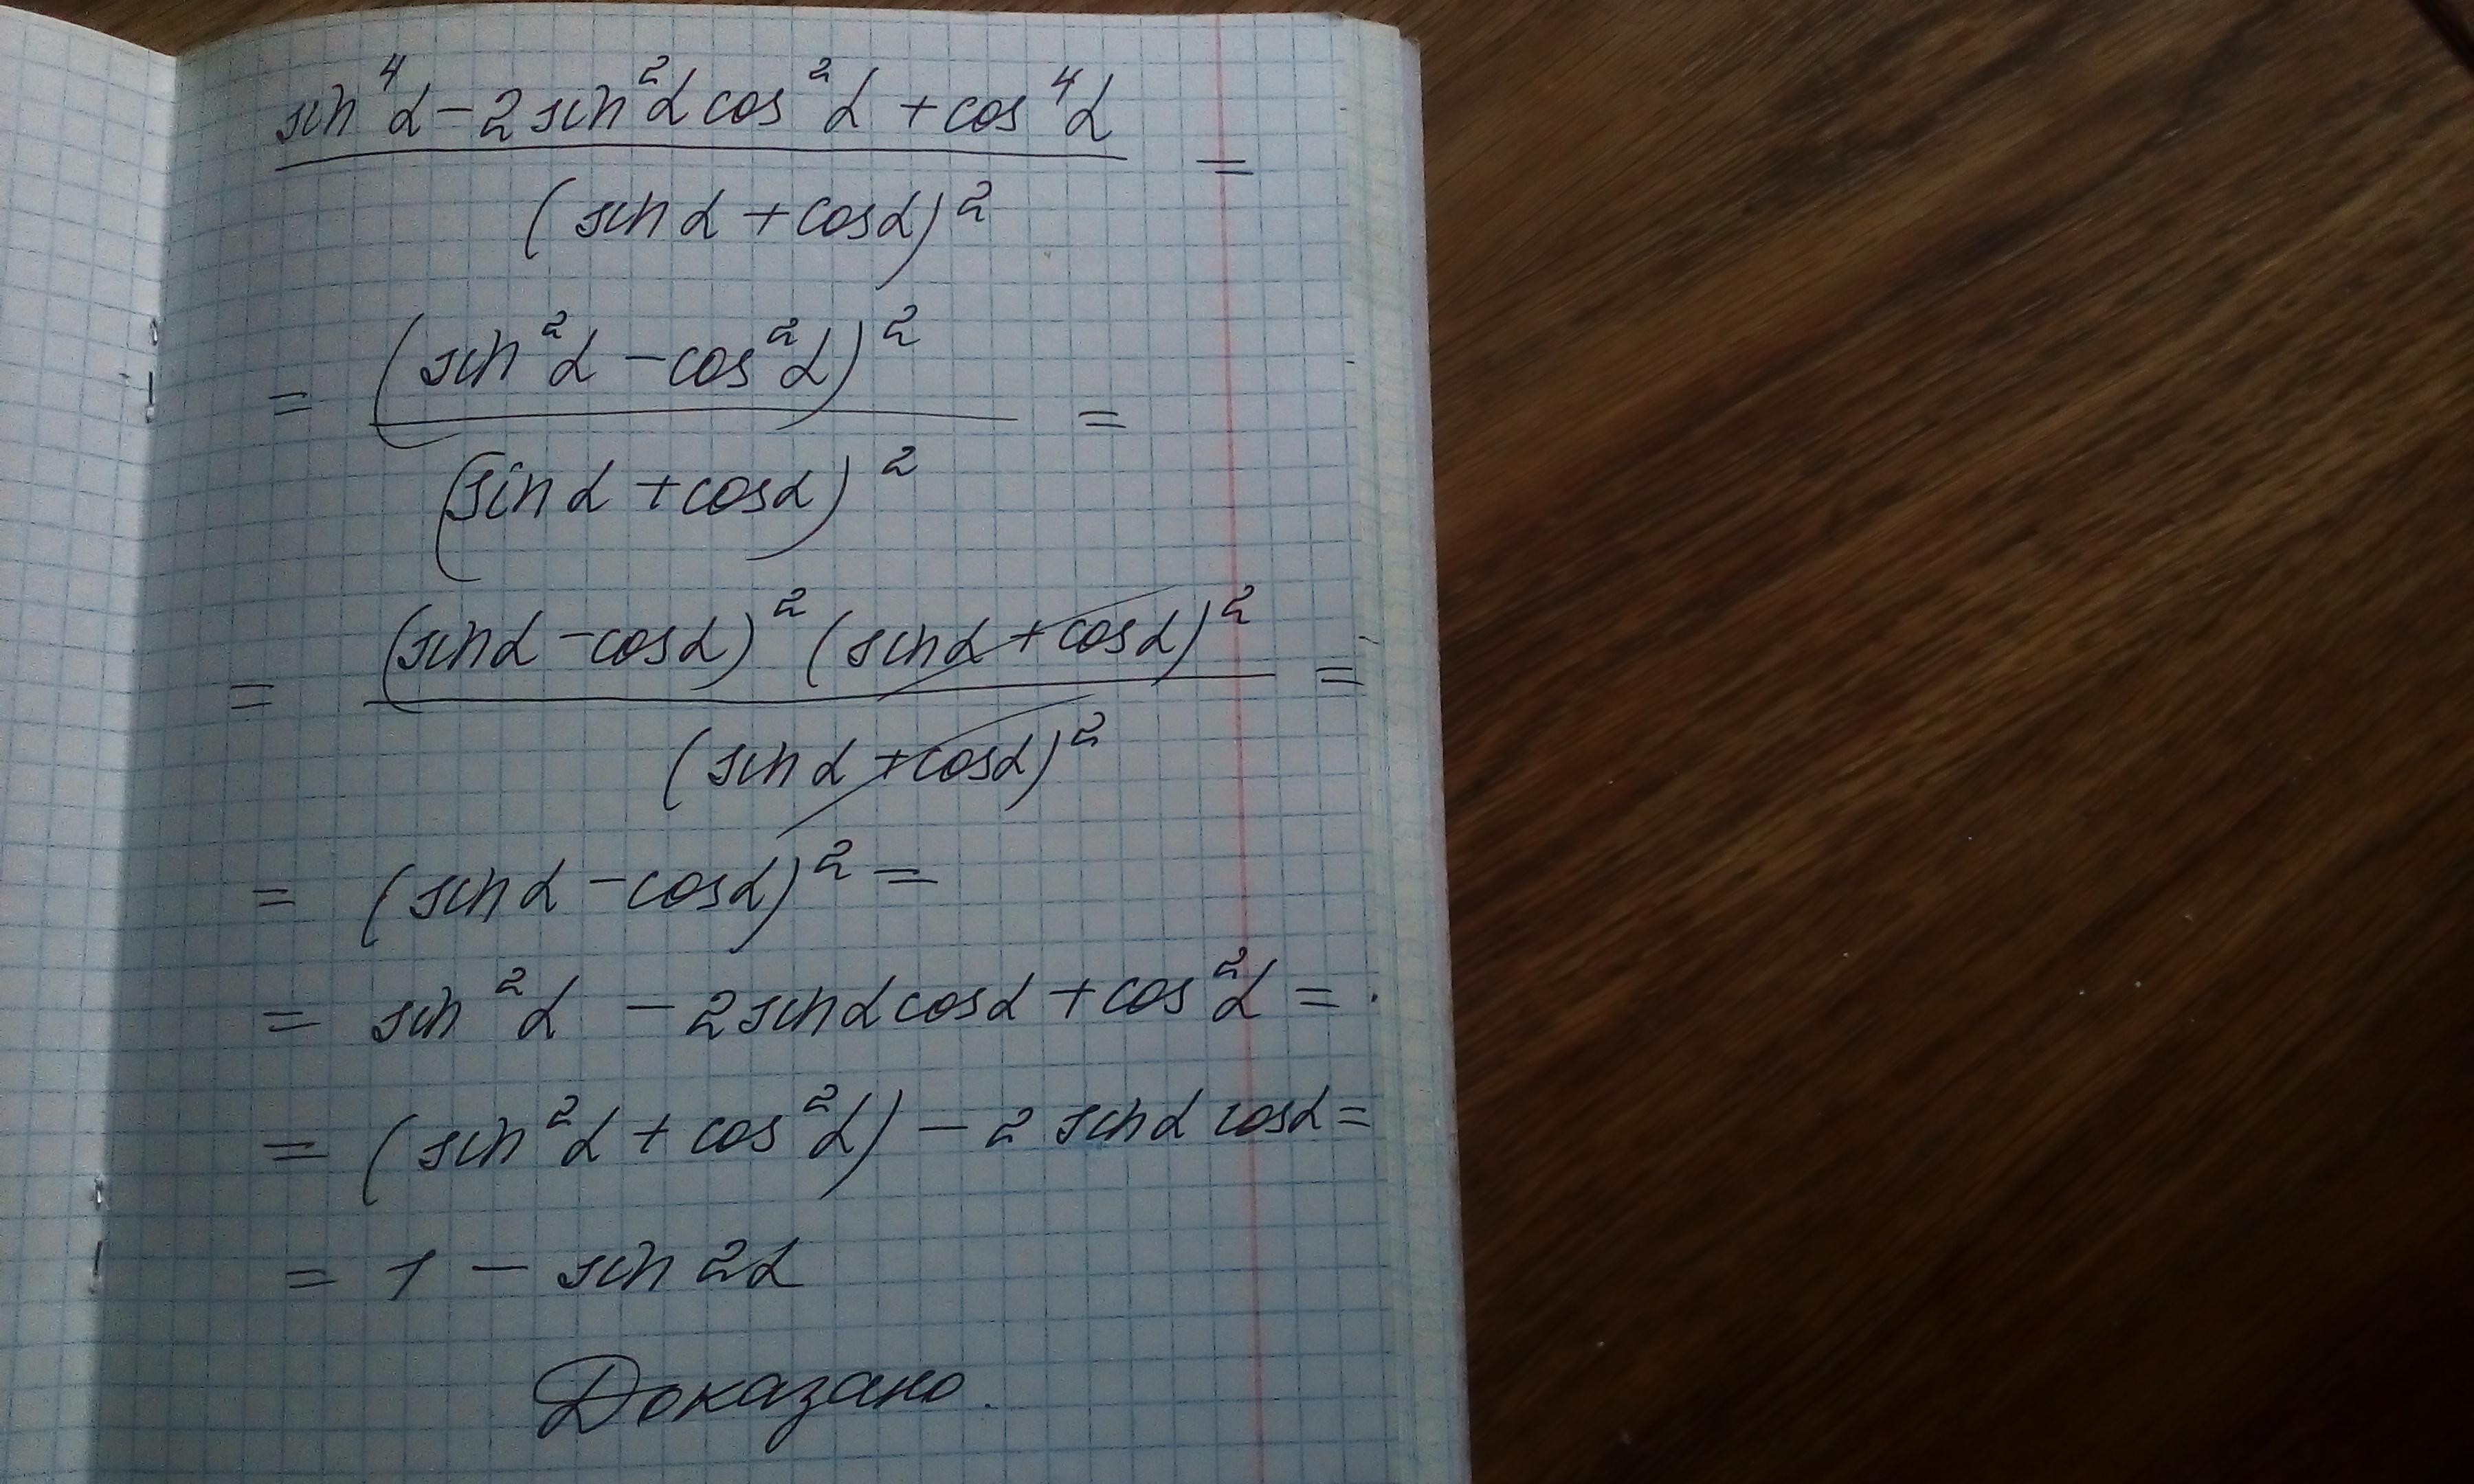 sin⁴α − 2 sin²α cos²α + cos⁴α =
(sin α + cos α)²
= (sin²α − cos²α)² =
(sin α + cos α)²
= (sin α − cos α)² (sin α + cos α)² =
(sin α + cos α)²
= (sin α − cos α)² =
= sin²α − 2 sin α cos α + cos²α =
= (sin²α + cos²α) − 2 sin α cos α =
= 1 − sin 2α
Доказано.